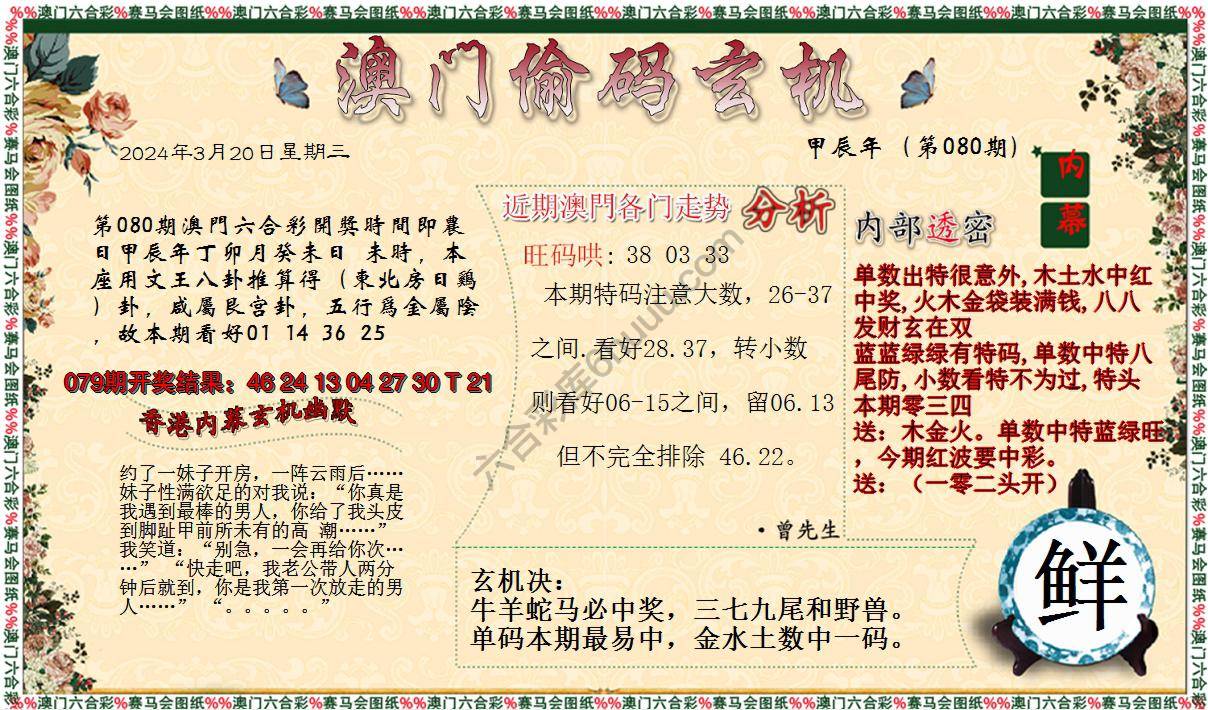 %%澳门六合彩%赛马会图纸%%澳门六合彩%赛马会图纸%%澳门六合彩%赛马会图纸%%澳门六合彩%赛马会图纸%%澳门六合彩%赛马会图纸%%
澳门偷码玄机
2024年3月20日星期三
甲辰年（第080期）
内幕
第080期澳門六合彩開獎時間即農
日甲辰年丁卯月癸未日 未時，本
座用文王八卦推算得（東北房日鷄
）卦，咸屬艮宫卦，五行爲金屬陰
，故本期看好01 14 36 25
079期开奖结果：46 24 13 04 27 30 T 21
香港内幕玄机幽默
约了一妹子开房，一阵云雨后……
妹子性满欲足的对我说：“你真是
我遇到最棒的男人，你给了我头皮
到脚趾甲前所未有的高 潮……”
我笑道：“别急，一会再给你次…
…” “快走吧，我老公带人两分
钟后就到，你是我第一次放走的男
人……” “。。。。。”
近期澳門各门走势 分析
旺码哄：38 03 33
本期特码注意大数，26-37
之间.看好28.37，转小数
则看好06-15之间，留06.13
但不完全排除 46.22。
·曾先生
内部透密
单数出特很意外,木土水中红
中奖,火木金袋装满钱,八八
发财玄在双
蓝蓝绿绿有特码,单数中特八
尾防,小数看特不为过,特头
本期零三四
送：木金火。单数中特蓝绿旺
，今期红波要中彩。
送：（一零二头开）
玄机决：
牛羊蛇马必中奖，三七九尾和野兽。
单码本期最易中，金水土数中一码。
鲜
%%澳门六合彩%赛马会图纸%%澳门六合彩%赛马会图纸%%澳门六合彩%赛马会图纸%%澳门六合彩%赛马会图纸%%澳门六合彩%赛马会图纸%%